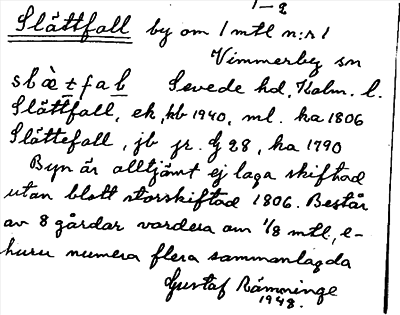 1–2
Slättfall by om 1 mtl n:r 1
Vimmerby sn
slæ̀ṯfaḻ Sevede hd, Kalm. l.
Slättfall, ek, kb 1940, ml. ka 1806
Slättefall, jb jr. G 28, ka 1790
Byn är alltjämt ej laga skiftad
utan blott storskiftad 1806. Består
av 8 gårdar vardera om 1/8 mtl, e-
huru numera flera sammanlagda
Gustaf Rämminge
1948.